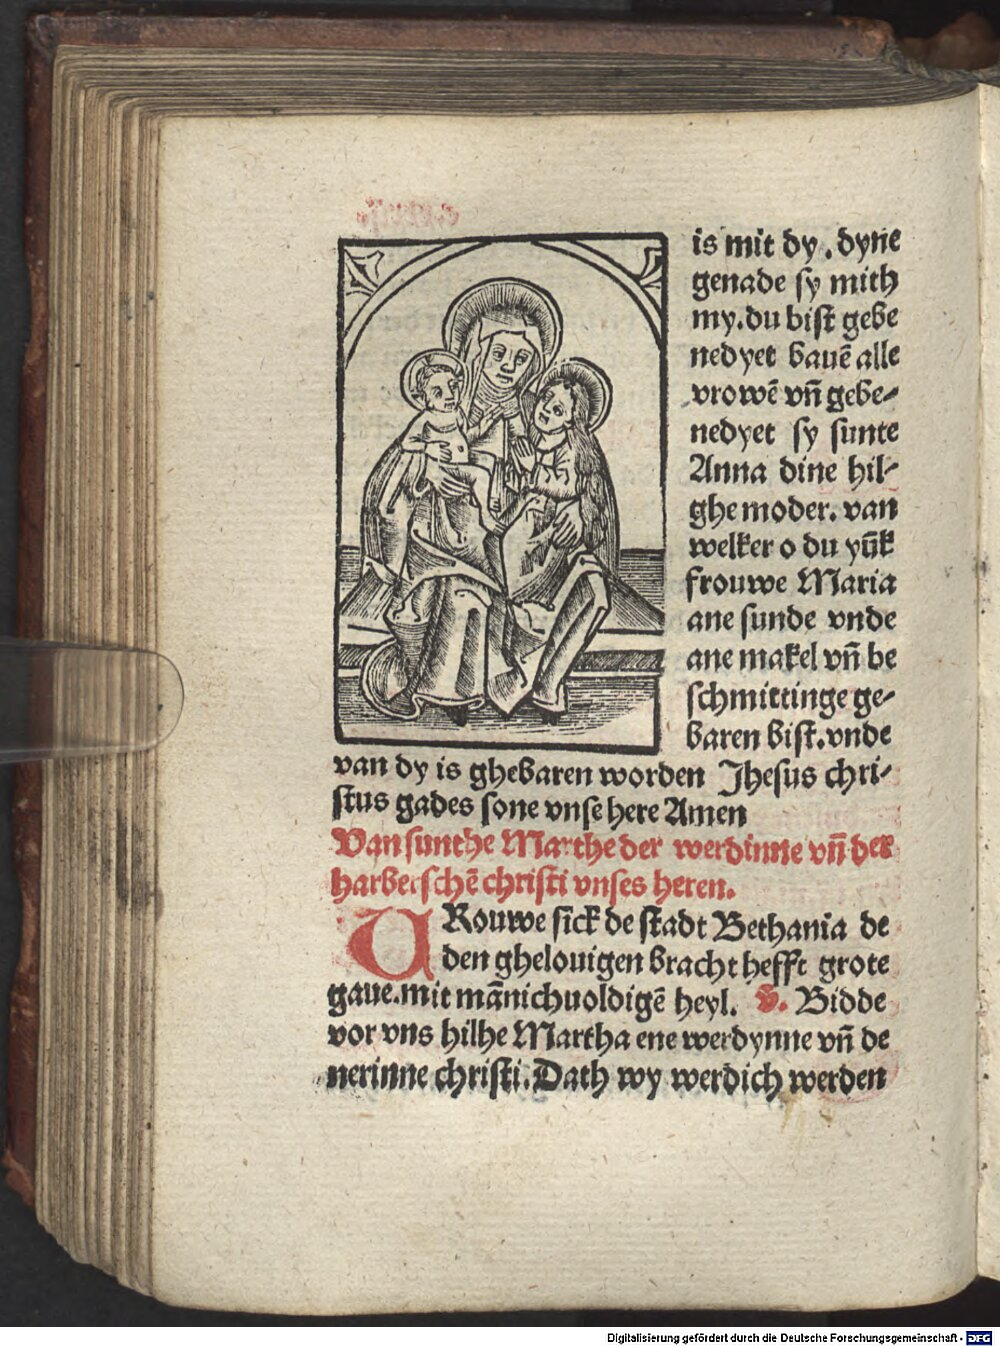 is mit dy . dyne
genade sy mith
my. du bist gebe
nedyet bauē alle
vrowē vn̄ gebe-
nedyet sy sunte
Anna dine hil-
ghe moder. van
welker o du yūk
frouwe Maria
ane sunde vnde
ane makel vn̄ be
schmittinge ge-
baren bist. vnde
van dy is ghebaren worden Jhesus chri-
stus gades sone vnse here Amen
Van sunthe Marthe der werdinne vn̄ der
harberschē christi vnses heren.
VRouwe sick de stadt Bethania de
den ghelouigen bracht hefft grote
gaue. mit mānichuoldigē heyl. v. Bidde
vor vns hilhe Martha ene werdynne vn̄ de
nerinne christi. Dath wy werdich werden
Digitalisierung gefördert durch die Deutsche Forschungsgemeinschaft - DFG